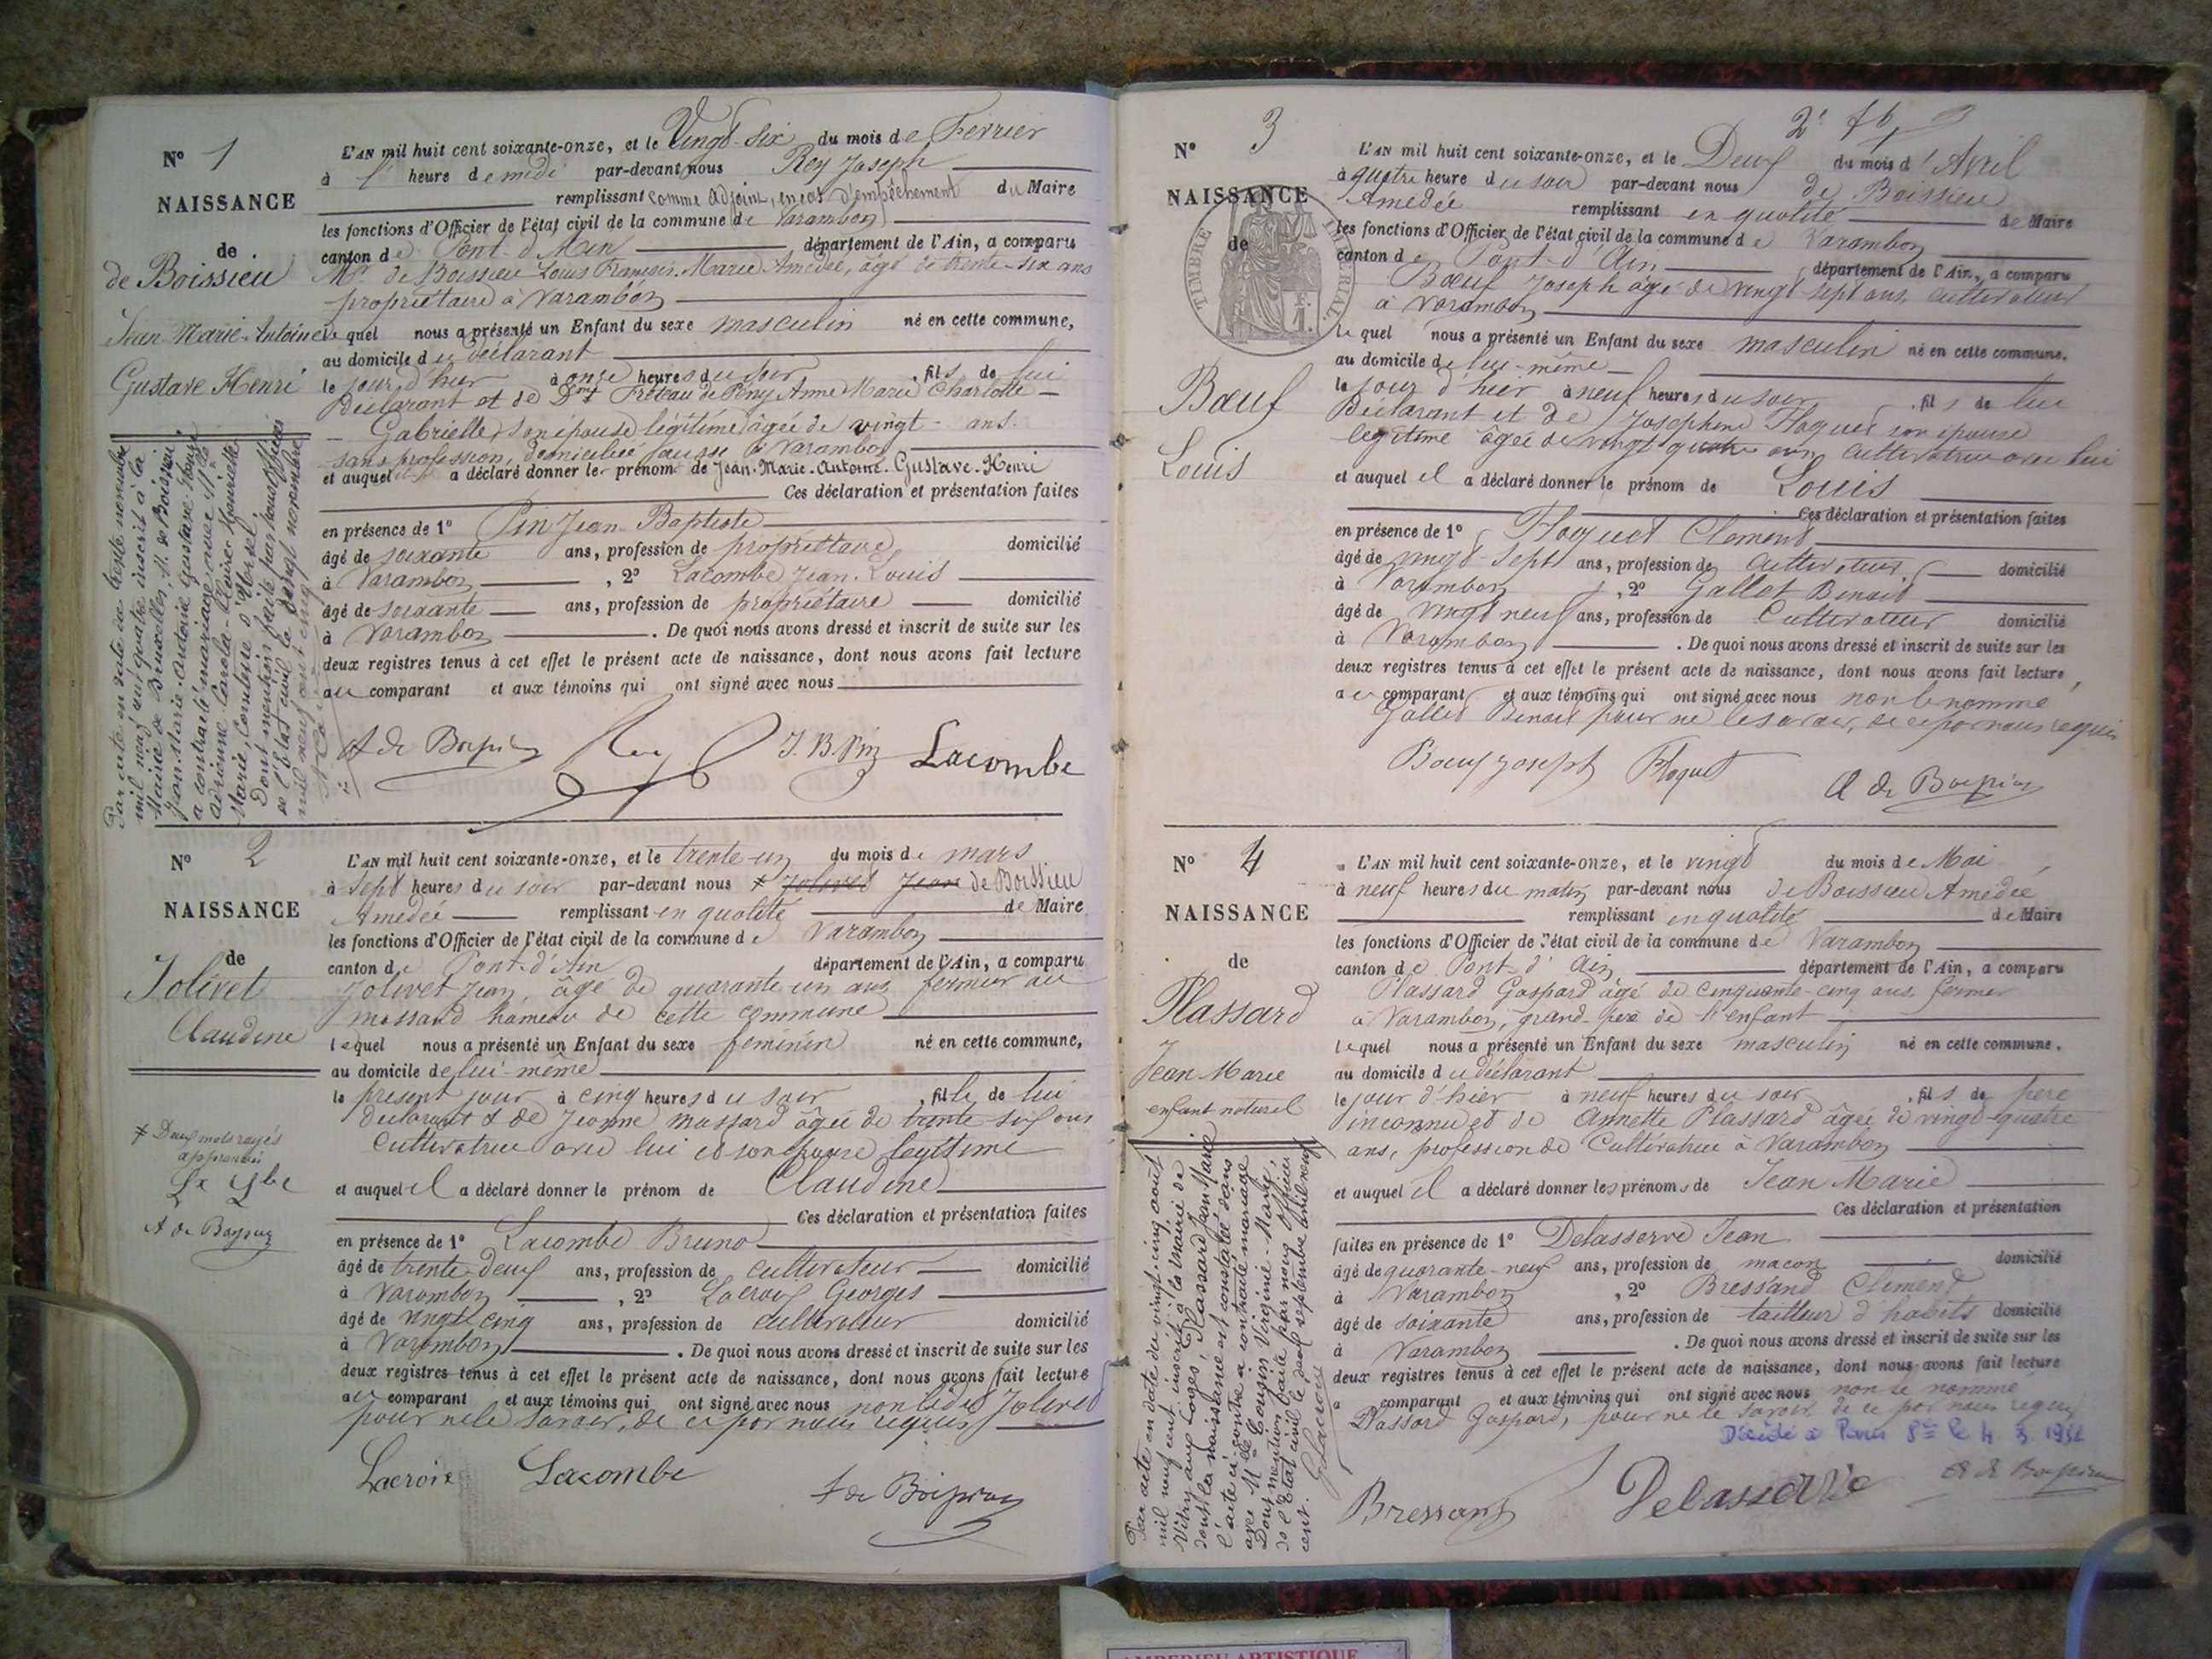 N° 1
NAISSANCE
de
de Boissieu
Jean-Marie-Antoine
Gustave Henri
L'AN mil huit cent soixante-onze, et le Vingt-six du mois de Ferrier
à l' heure de midi par-devant nous Rey Joseph
remplissant comme adjoint, en cas d'empêchement du Maire
les fonctions d'Officier de l'état civil de la commune de Varambon
canton de Pont-d'Ain département de l'Ain, a comparu
Mr de Boissieu Louis François-Marie Amédée, âgé de trente-six ans
propriétaire à Varambon
le quel nous a présenté un Enfant du sexe masculin né en cette commune,
au domicile du déclarant
le jour d'hier à onze heures du soir, fils de lui
Déclarant et de Fréteau de Pény Anne Marie Charlotte
Gabrielle, son épouse légitime âgée de vingt ans.
sans profession, domiciliée aussi à Varambon
et auquel a déclaré donner les prénoms de Jean-Marie-Antoine-Gustave-Henri
Ces déclaration et présentation faites
en présence de 1° Pin Jean-Baptiste
âgé de soixante ans, profession de propriétaire domicilié
à Varambon, 2° Lacombe Jean-Louis
âgé de soixante ans, profession de propriétaire domicilié
à Varambon. De quoi nous avons dressé et inscrit de suite sur les
deux registres tenus à cet effet le présent acte de naissance, dont nous avons fait lecture
au comparant et aux témoins qui ont signé avec nous
Par acte en date du trente novembre
mil neuf cent quatre inscrit à la
Mairie de Bruxelles, M. de Boissieu
Jean-Marie-Antoine Gustave-Henri
a contracté mariage avec Mlle
Adrienne Carola-Claire-Henriette
Marie, Comtesse d'Ursel.
Dont mention faite par nous officier
de l'état civil le vingt novembre
mil neuf cent cinq
A de Boissieu Rey J. B. Pin Lacombe
N° 2
NAISSANCE
de
Jolivet
Claudine
* Deux mots rayés
approuvés
A de Boissieu
L'AN mil huit cent soixante-onze, et le trente-un du mois de mars
à sept heures du soir par-devant nous * Jolivet Jean de Boissieu
Amédée remplissant en qualité de Maire
les fonctions d'Officier de l'état civil de la commune de Varambon
canton de Pont-d'Ain département de l'Ain, a comparu
Jolivet Jean, âgé de quarante-un ans fermier au
massard hameau de cette commune
lequel nous a présenté un Enfant du sexe féminin né en cette commune,
au domicile de lui-même
le présent jour à cinq heures du soir, fille de lui
déclarant & de Jeanne massard âgée de trente six ans
cultivatrice avec lui et son épouse légitime
et auquel il a déclaré donner le prénom de Claudine
Ces déclaration et présentation faites
en présence de 1° Lacombe Bruno
âgé de trente-deux ans, profession de cultivateur domicilié
à Varambon, 2° Lacroix Georges
âgé de vingt cinq ans, profession de cultivateur domicilié
à Varambon. De quoi nous avons dressé et inscrit de suite sur les
deux registres tenus à cet effet le présent acte de naissance, dont nous avons fait lecture
au comparant et aux témoins qui ont signé avec nous non le dit Jolivet
pour ne le savoir, de ce par nous requis
Lacroix Lacombe A de Boissieu
N° 3
NAISSANCE
de
TIMBRE IMPÉRIAL
Bœuf
Louis
L'AN mil huit cent soixante-onze, et le Deux du mois d'Avril
à quatre heure du soir par-devant nous de Boissieu
Amédée remplissant en qualité de Maire
les fonctions d'Officier de l'état civil de la commune de Varambon
canton de Pont-d'Ain département de l'Ain, a comparu
Bœuf Joseph âgé de vingt-sept ans, cultivateur
à Varambon
le quel nous a présenté un Enfant du sexe masculin né en cette commune.
au domicile de lui-même
le jour d'hier à neuf heures du soir, fils de lui
Déclarant et de Josephine Floquet son épouse
légitime âgée de vingt quatre ans cultivatrice avec lui
et auquel il a déclaré donner le prénom de Louis
Ces déclaration et présentation faites
en présence de 1° Floquet Clement
âgé de vingt-sept ans, profession de cultivateur domicilié
à Varambon, 2° Gallet Benoit
âgé de vingt neuf ans, profession de Cultivateur domicilié
à Varambon. De quoi nous avons dressé et inscrit de suite sur les
deux registres tenus à cet effet le présent acte de naissance, dont nous avons fait lecture,
au comparant et aux témoins qui ont signé avec nous non le nommé
Gallet Benoit pour ne le savoir, de ce par nous requis
Bœuf Joseph Floquet A de Boissieu
N° 4
NAISSANCE
de
Plassard
Jean Marie
enfant naturel
L'AN mil huit cent soixante-onze, et le vingt du mois de Mai
à neuf heures du matin par-devant nous de Boissieu Amédée
remplissant en qualité de Maire
les fonctions d'Officier de l'état civil de la commune de Varambon
canton de Pont-d'Ain département de l'Ain, a comparu
Plassard Gaspard âgé de cinquante-cinq ans, fermier
à Varambon, grand-père de l'enfant
lequel nous a présenté un Enfant du sexe masculin né en cette commune.
au domicile du déclarant
le jour d'hier à neuf heures du soir, fils de père
inconnu et de Annette Plassard âgée de vingt-quatre
ans, profession de Cultivatrice à Varambon
et auquel il a déclaré donner les prénoms de Jean Marie
Ces déclaration et présentation
faites en présence de 1° Delasserve Jean
âgé de quarante-neuf ans, profession de maçon domicilié
à Varambon, 2° Bressand Clément
âgé de soixante ans, profession de tailleur d'habits domicilié
à Varambon. De quoi nous avons dressé et inscrit de suite sur les
deux registres tenus à cet effet le présent acte de naissance, dont nous avons fait lecture
a comparant et aux témoins qui ont signé avec nous non le nommé
Plassard Gaspard, pour ne le savoir de ce par nous requis
Décédé à Paris 8e le 4 3 1932
Par acte en date du vingt-cinq août
mil neuf cent inscrit à la Mairie de
Vitry aux Loges, Plassard Jean Marie
dont la naissance est constatée dans
l'acte ci-contre a contracté mariage
avec Mlle Cousin Virginie-Marie,
Dont mention faite par nous officier
de l'Etat civil le deux septembre mil neuf
cent.
Bressand Delasserve A de Boissieu
AMBERIEU ARTISTIQUE